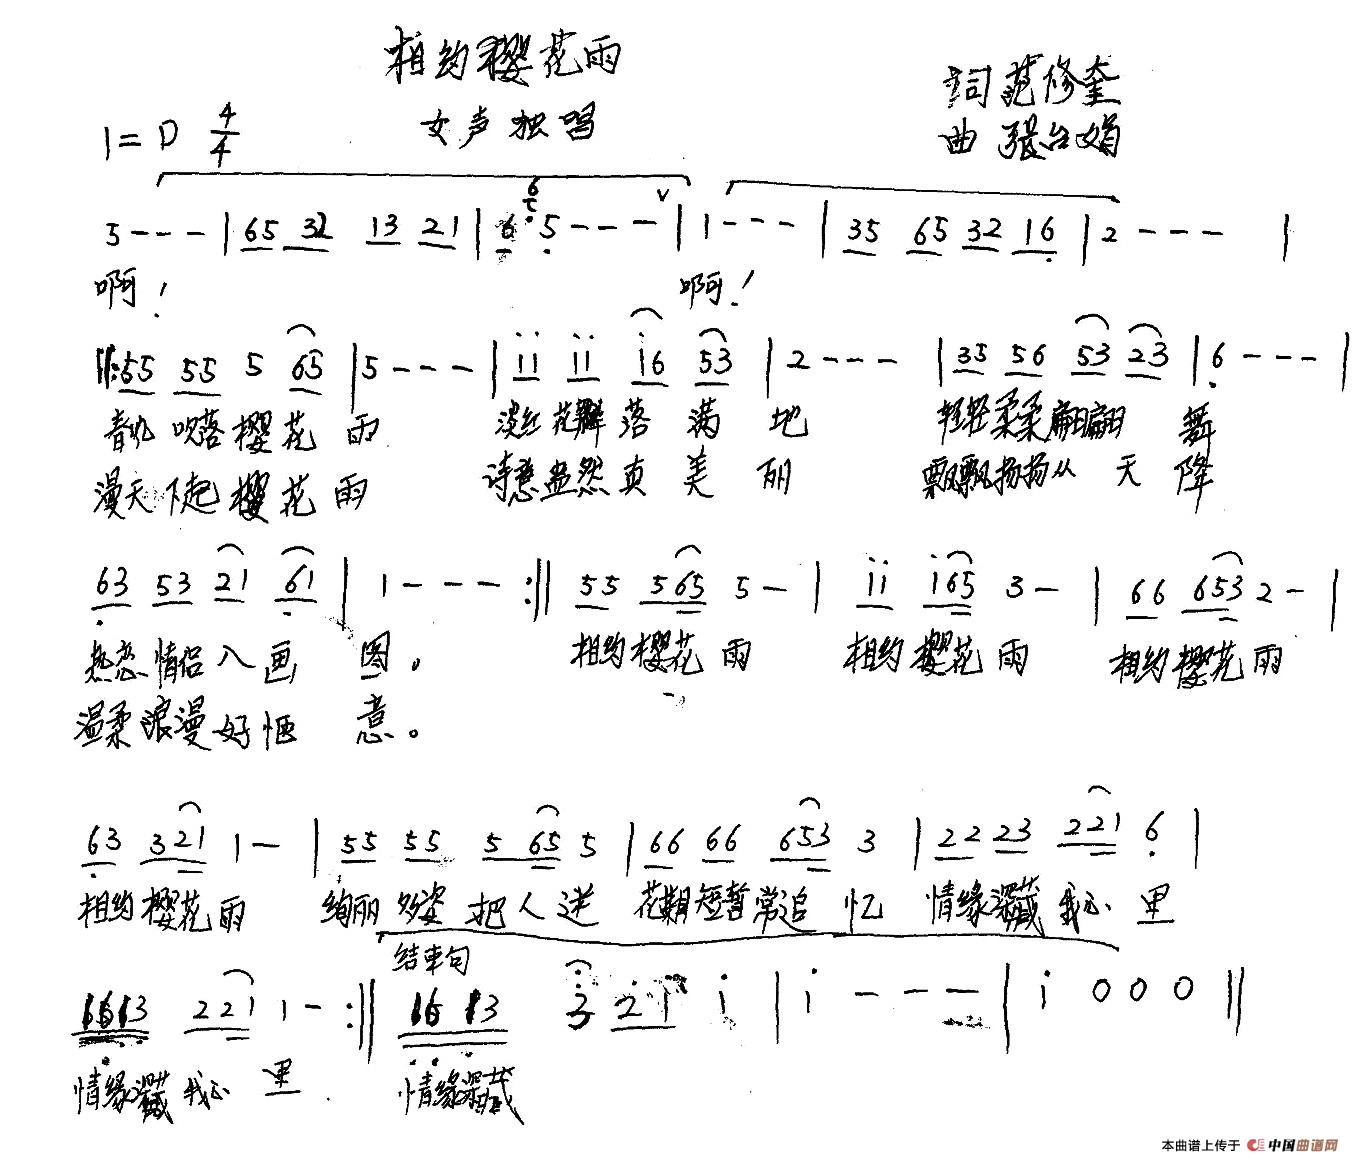 相约樱花雨
女声独唱
1=D 4/4
词 范修奎
曲 张台娟
5 - - - | 65 32 13 21 | 6 5 - - - | 1 - - - | 35 65 32 16 | 2 - - - |
啊! 啊!
||: 55 55 5 65 | 5 - - - | 11 11 16 53 | 2 - - - | 35 56 53 23 | 6 - - - |
春风 吹落 樱花 雨 淡红 花瓣 落 满 地 轻轻柔柔翩翩 舞
漫天下起樱花雨 诗意盎然真美丽 飘飘扬扬从天降
63 53 21 61 | 1 - - - :|| 55 565 5 - | 11 165 3 - | 66 653 2 - |
热恋情侣入画 图。 相约樱花雨 相约樱花雨 相约樱花雨
温柔浪漫好惬 意。
63 321 1 - | 55 55 5 65 5 | 66 66 653 3 | 22 23 221 6 |
相约樱花雨 绚丽多姿 把人迷 花期短暂常追忆 情缘深藏我心里
结束句
1613 221 1 - :|| 16 13 3 21 1 | 1 - - - | 1 0 0 0 ||
情缘深藏我心里 情缘深藏
本曲谱上传于 中国曲谱网